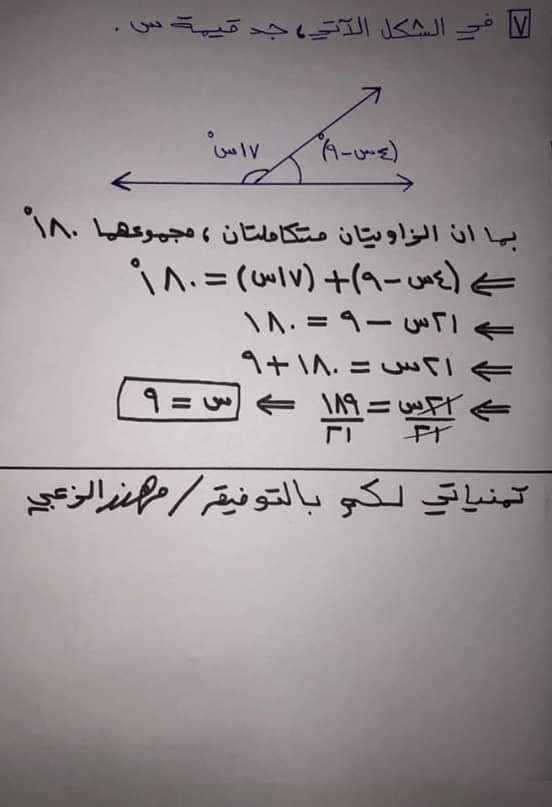 ٧ في الشكل الآتي، جد قيمة س .
١٧س° (٤س-٩)°
بما ان الزاويتان متكاملتان ، مجموعهما ١٨٠°
⇐ (٤س-٩) + (١٧س) = ١٨٠°
⇐ ٢١س - ٩ = ١٨٠
⇐ ٢١س = ١٨٠ + ٩
⇐ ٢١س/٢١ = ١٨٩/٢١ ⇐ س = ٩
تمنياتي لكم بالتوفيق / مهند الزعبي